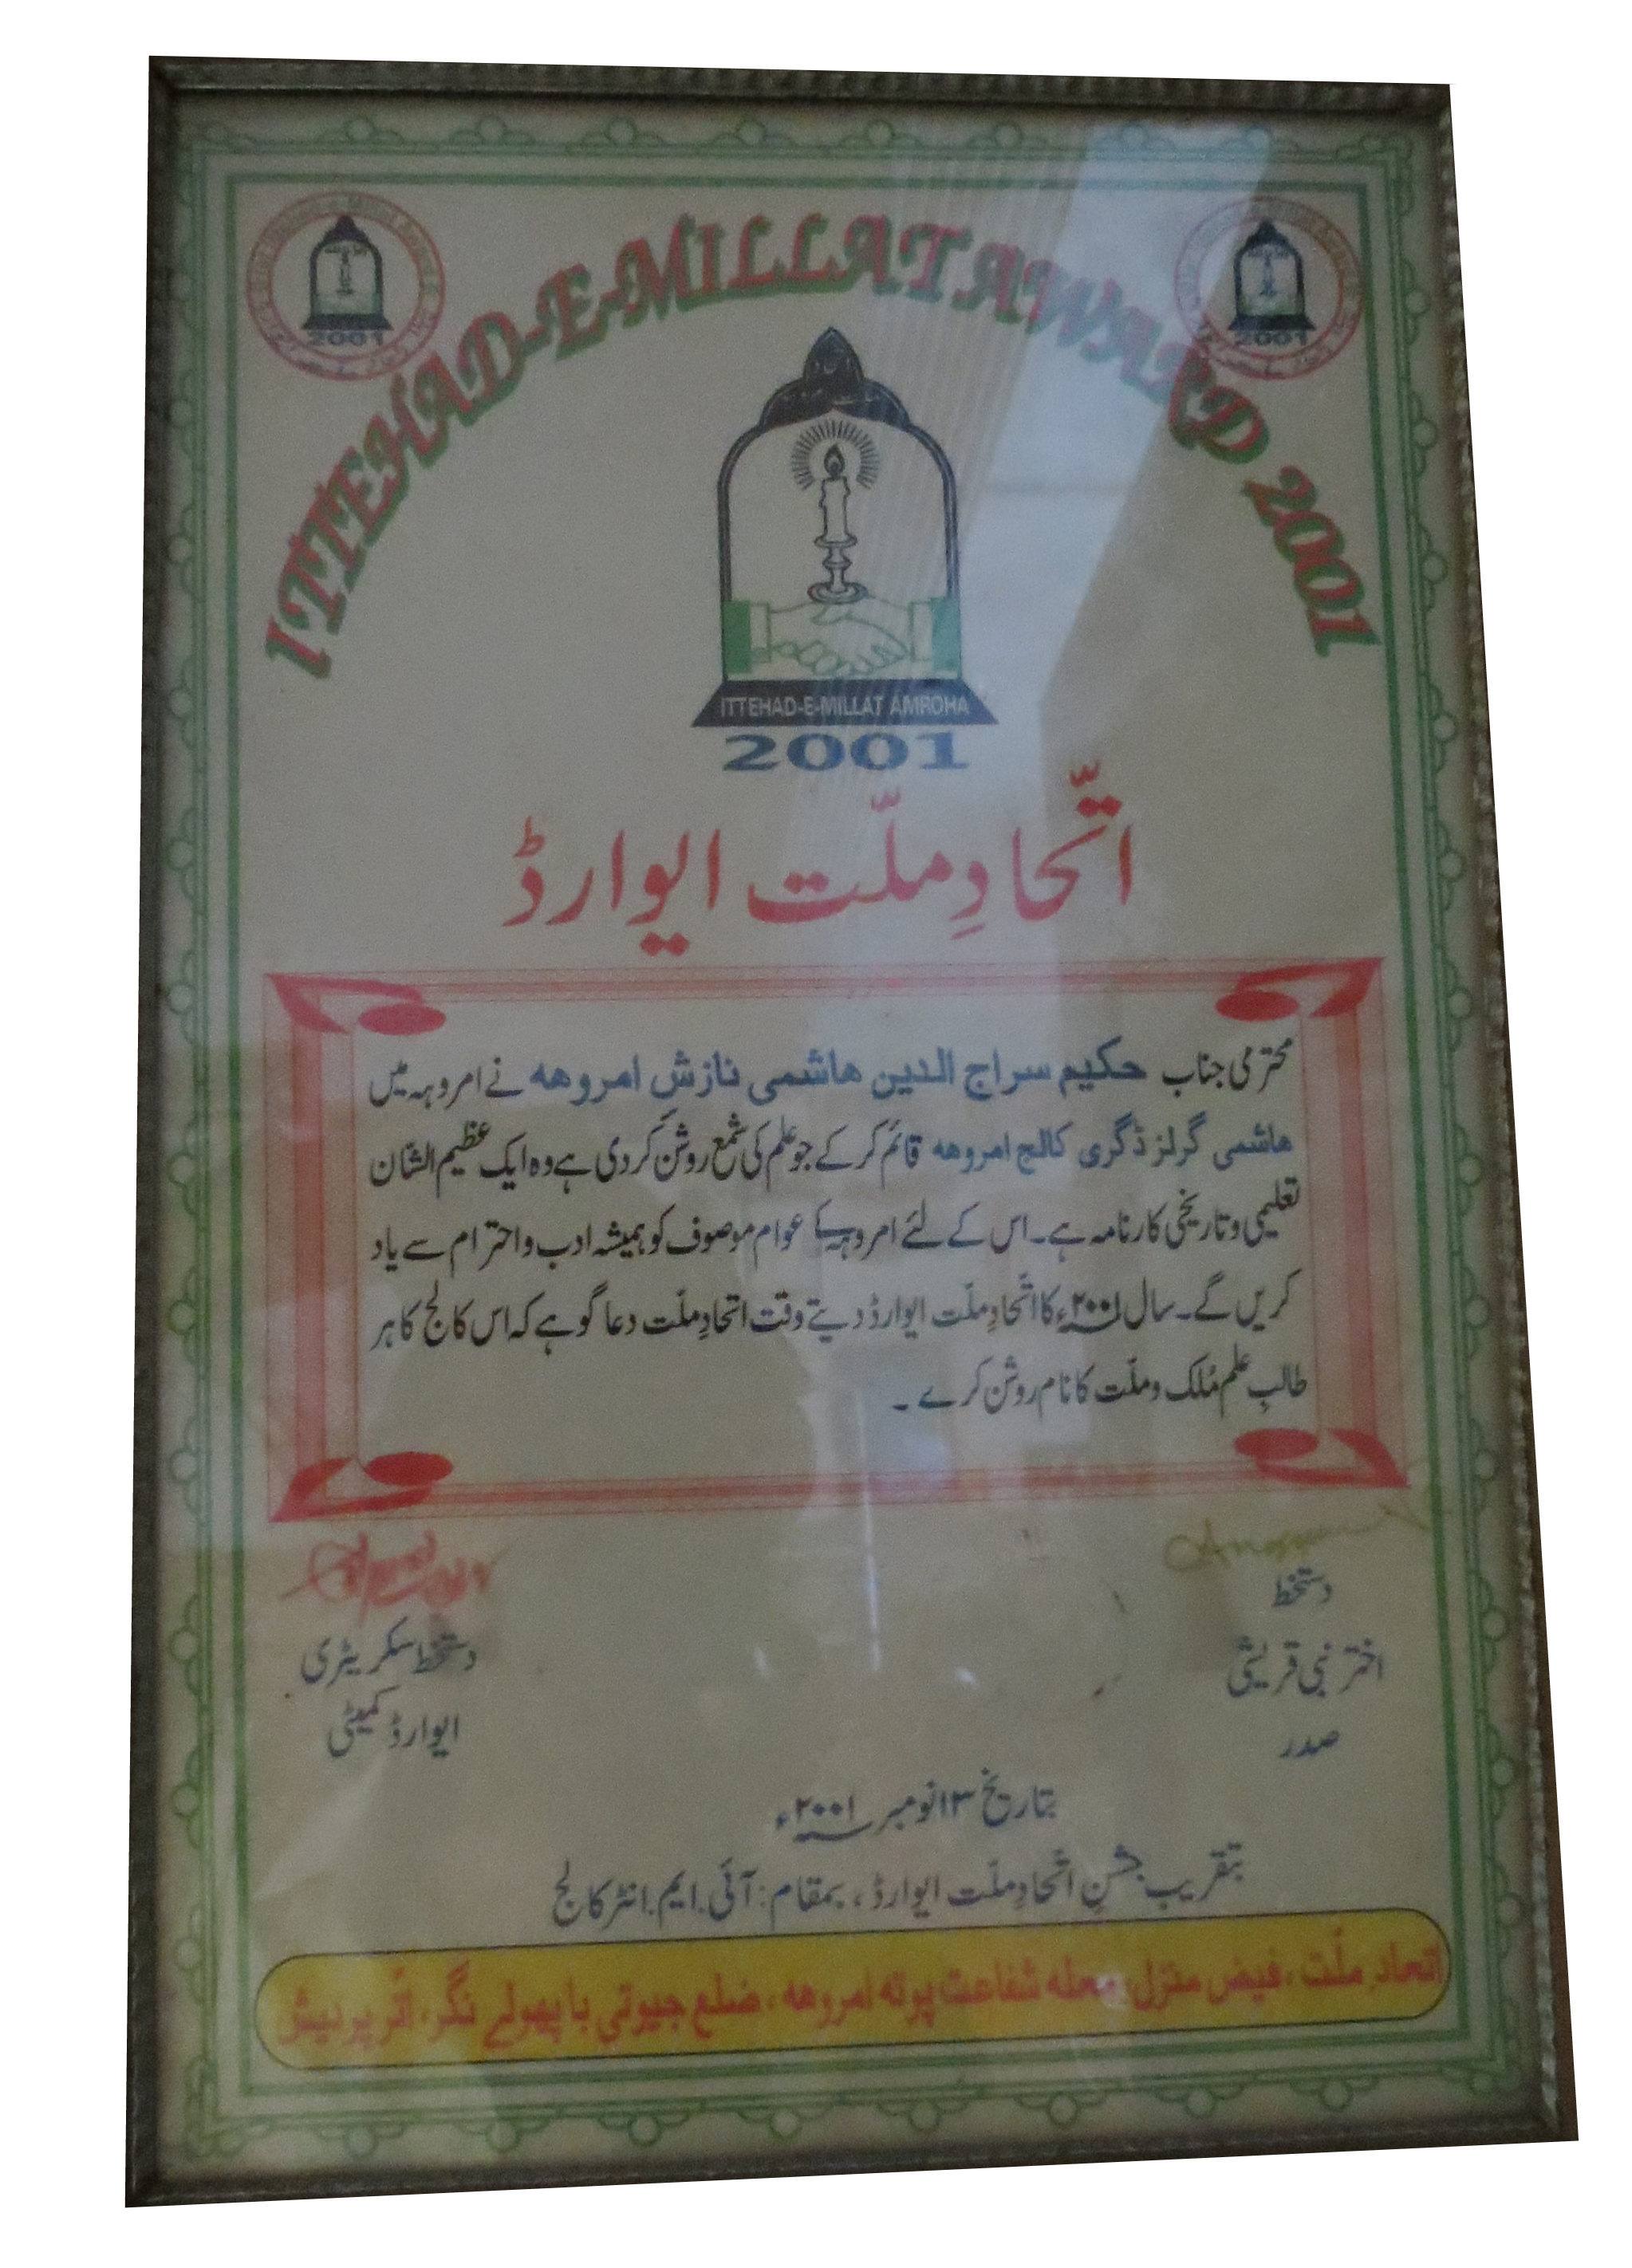 ITTEHAD-E-MILLAT AWARD 2001
2001
2001
ITTEHAD-E-MILLAT AMROHA
2001
اتّحادِ ملّت ایوارڈ
محترمی جناب حکیم سراج الدین ہاشمی نازش امروہہ نے امروہہ میں
ہاشمی گرلز ڈگری کالج امروہہ قائم کرکے جو علم کی شمع روشن کردی ہے وہ ایک عظیم الشان
تعلیمی و تاریخی کارنامہ ہے۔ اس کے لئے امروہہ کے عوام موصوف کو ہمیشہ ادب و احترام سے یاد
کریں گے۔ سال ۲۰۰۱ء کا اتّحادِ ملّت ایوارڈ دیتے وقت اتحادِ ملّت دعا گو ہے کہ اس کالج کا ہر
طالبِ علم مُلک و ملّت کا نام روشن کرے ۔
دستخط
اختر نبی قریشی
صدر
دستخط سکریٹری
ایوارڈ کمیٹی
بتاریخ ۱۳ نومبر ۲۰۰۱ء
بتقریب جشنِ اتّحادِ ملّت ایوارڈ ، بمقام : آئی. ایم. انٹر کالج
اتحادِ ملّت ، فیض منزل، محلہ شفاعت پوتہ امروہہ ، ضلع جیوتی با پھولے نگر، اتّر پردیش